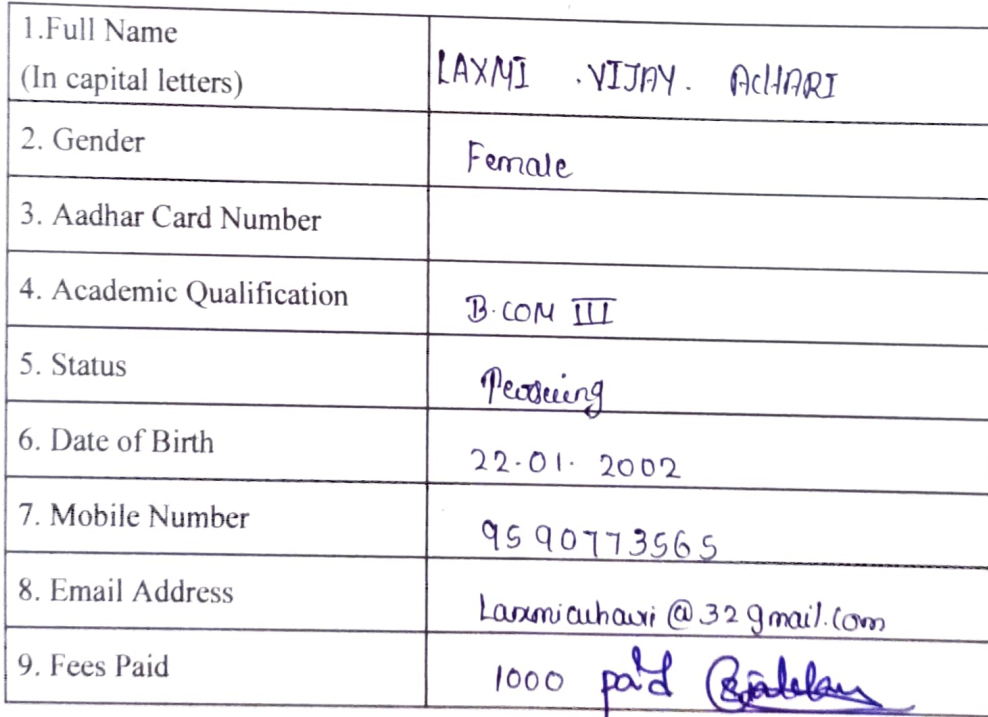 1.Full Name
(In capital letters)
LAXMI .VIJAY. ACHARI
2. Gender
Female
3. Aadhar Card Number
4. Academic Qualification
B.COM III
5. Status
6. Date of Birth
22.01. 2002
7. Mobile Number
9590773565
8. Email Address
Laxmiachari@32gmail.com
9. Fees Paid
1000 paid